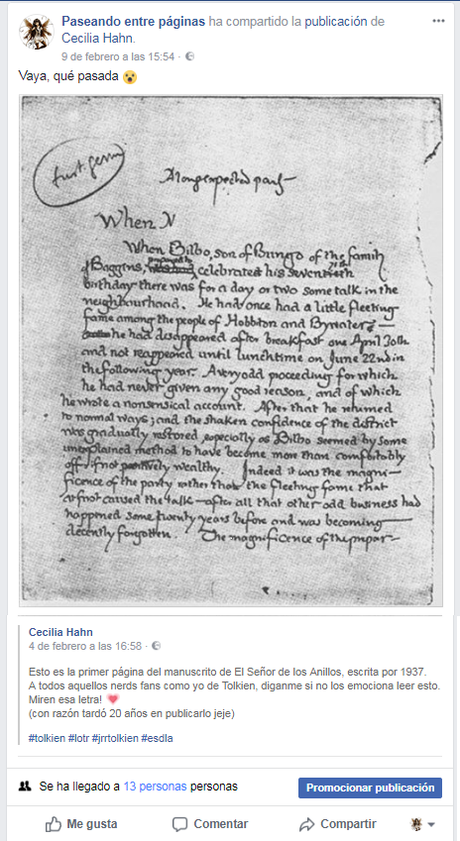 Paseando entre páginas ha compartido la publicación de
Cecilia Hahn.
9 de febrero a las 15:54 ·
Vaya, qué pasada
first germ
A long expected party
When N
When Bilbo, son of Bungo of the family
of Baggins, celebrated his seventieth
birthday there was for a day or two some talk in the
neighbourhood. He had once had a little fleeting
fame among the people of Hobbiton and Bywater —
he had disappeared after breakfast one April 30th
and not reappeared until lunchtime on June 22nd in
the following year. A very odd proceeding for which
he had never given any good reason, and of which
he wrote a nonsensical account. After that he returned
to normal ways; and the shaken confidence of the district
was gradually restored, especially as Bilbo seemed by some
unexplained method to have become more than comfortably
off, if not positively wealthy. Indeed it was the magni-
ficence of the party rather than the fleeting fame that
at first caused the talk — after all that other odd business had
happened some twenty years before and was becoming
decently forgotten. The magnificence of the prepar-
Cecilia Hahn
4 de febrero a las 16:58 ·
Esto es la primer página del manuscrito de El Señor de los Anillos, escrita por 1937.
A todos aquellos nerds fans como yo de Tolkien, diganme si no los emociona leer esto.
Miren esa letra!
(con razón tardó 20 años en publicarlo jeje)
#tolkien #lotr #jrrtolkien #esdla
Se ha llegado a 13 personas personas
Promocionar publicación
Me gusta
Comentar
Compartir